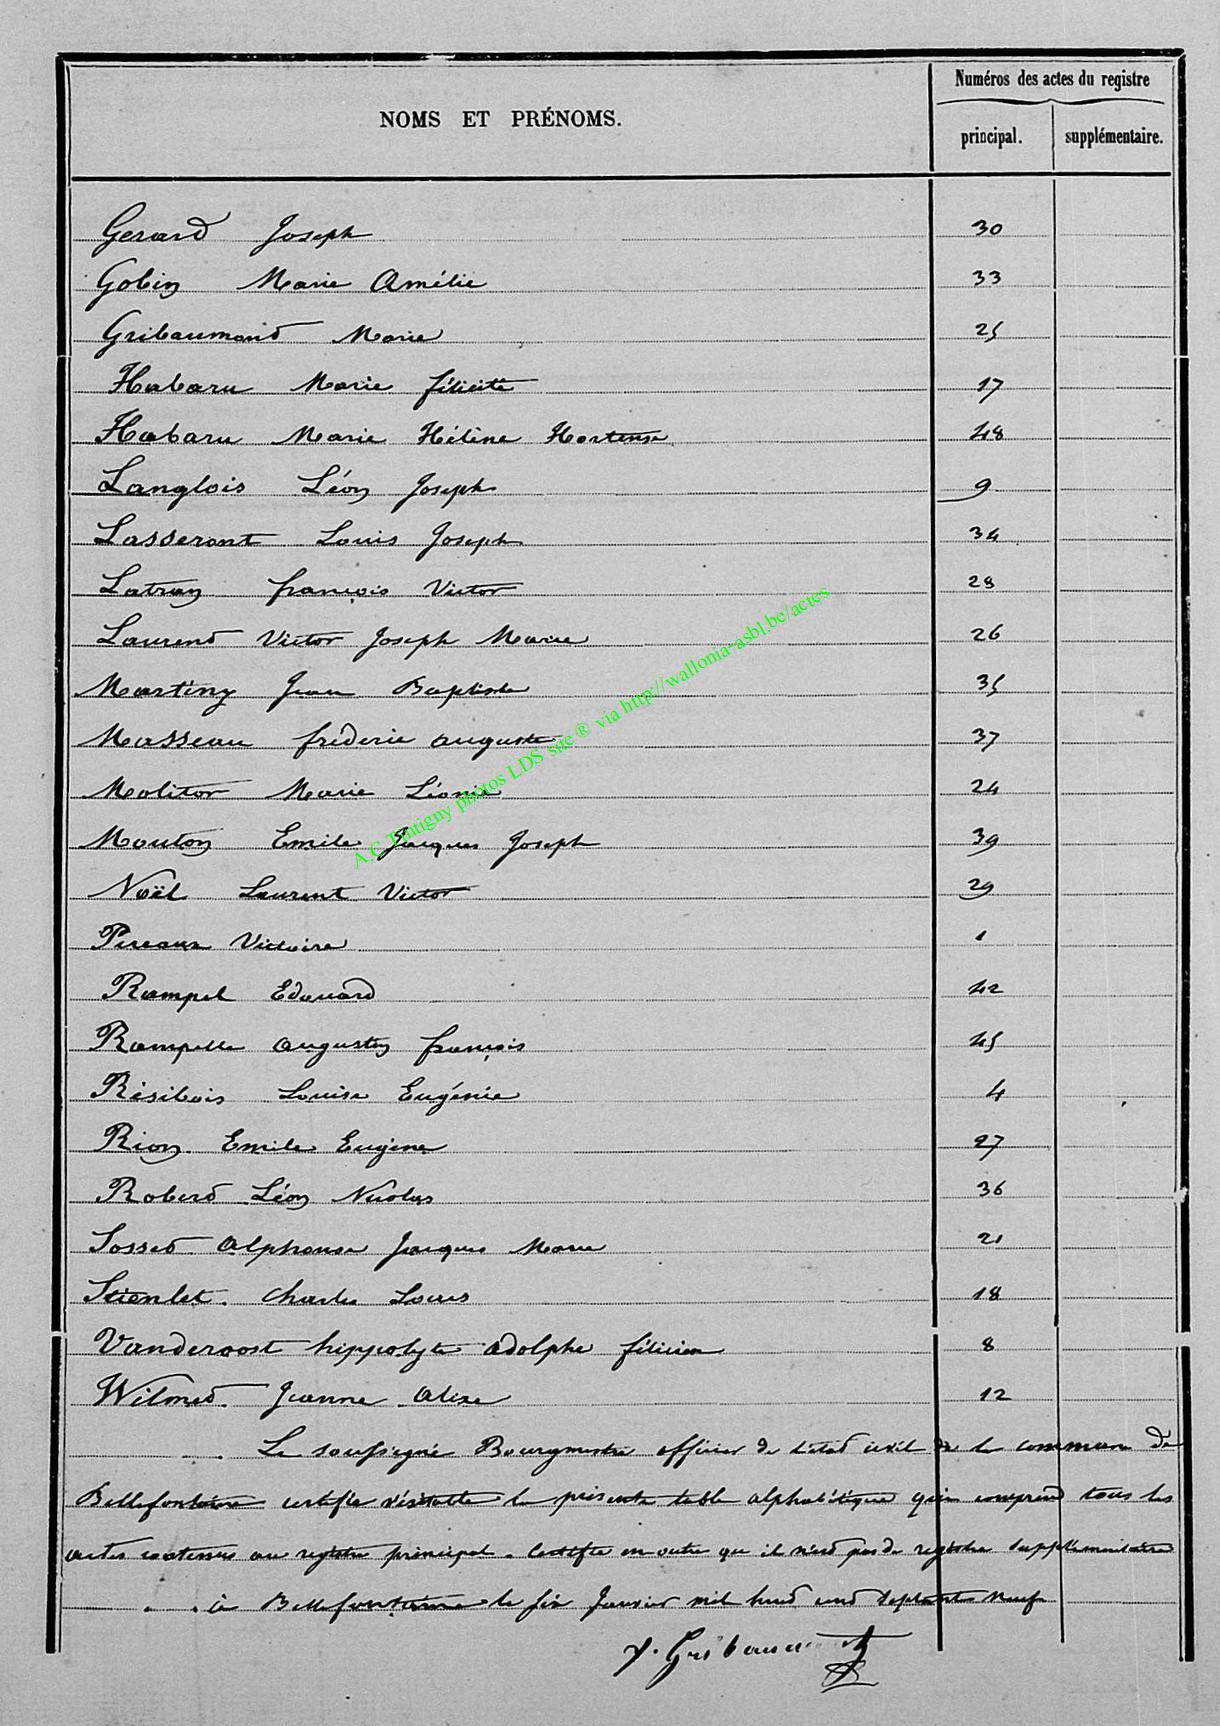 Numéros des actes du registre
NOMS ET PRÉNOMS.
principal. supplémentaire.
Gerard Joseph 30
Gobin Marie Amélie 33
Gribaumond Marie 25
Habaru Marie félicité 17
Habaru Marie Hélène Hortense 48
Langlois Léon Joseph 9
Lasserant Louis Joseph 34
Latran françois Victor 28
Laurend Victor Joseph Marie 26
Martiny Jean Baptiste 35
Masseau fréderic auguste 37
Molitor Marie Léonie 24
Mouton Emile Jacques Joseph 39
Noël Laurent Victor 29
Pireaux Victoire 1
Rampel Edouard 42
Rampelle augustin françois 45
Résibois Louise Eugénie 4
Rion Emile Eugène 27
Roberd Léon Nicolas 36
Sossed alphonse Jacques Marie 21
Stienlet. Charles Louis 18
Vanderoost hippolyte adolphe félicien 8
Wilmed. Jeanne alixe 12
Le soussigné Bourgmestre officier de l'étad civil de la commune de
Bellefontaine certifie la présente table alphabétique qui comprend tous les
actes contenus au registre principal. Certifie en outre que il n'est pas de registre supplémentaire
à Bellefontaine le six Janvier mil huid cend septante neuf
A.C. Tintigny photos LDS site ® via http://wallonia-asbl.be/actes